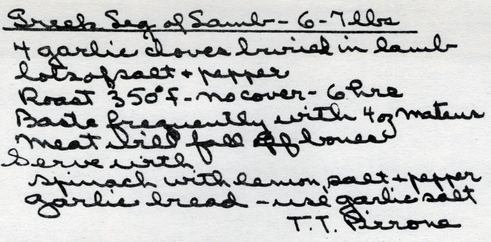 Greek Leg of Lamb - 6-7 lbs
4 garlic cloves buried in lamb
Lots of salt + pepper
Roast 350°f - no cover - 6 hrs
Baste frequently with 4 oz mateus
Meat will fall off bones
Serve with
Spinach with lemon, salt + pepper
Garlic bread - use garlic salt
T.T. Pirrone